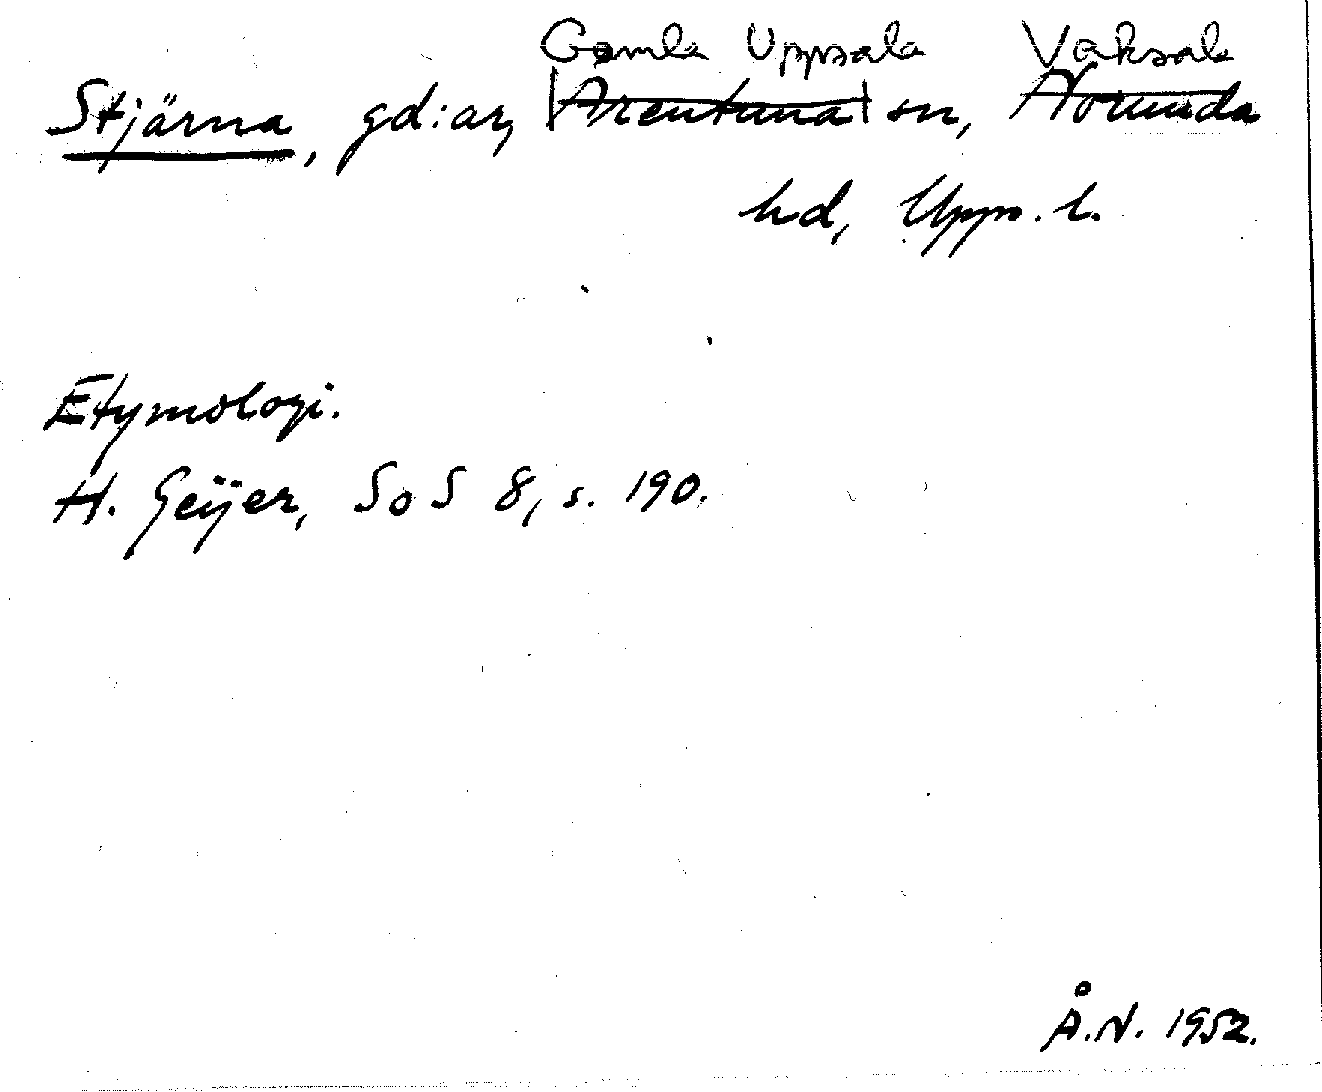 Gamla Uppsala Vaksala
Stjärna, gd:ar, Ärentuna sn, Norunda
hd, Upps. l.
Etymologi.
H. Geijer, SoS 8, s. 190.
Å.N. 1952.